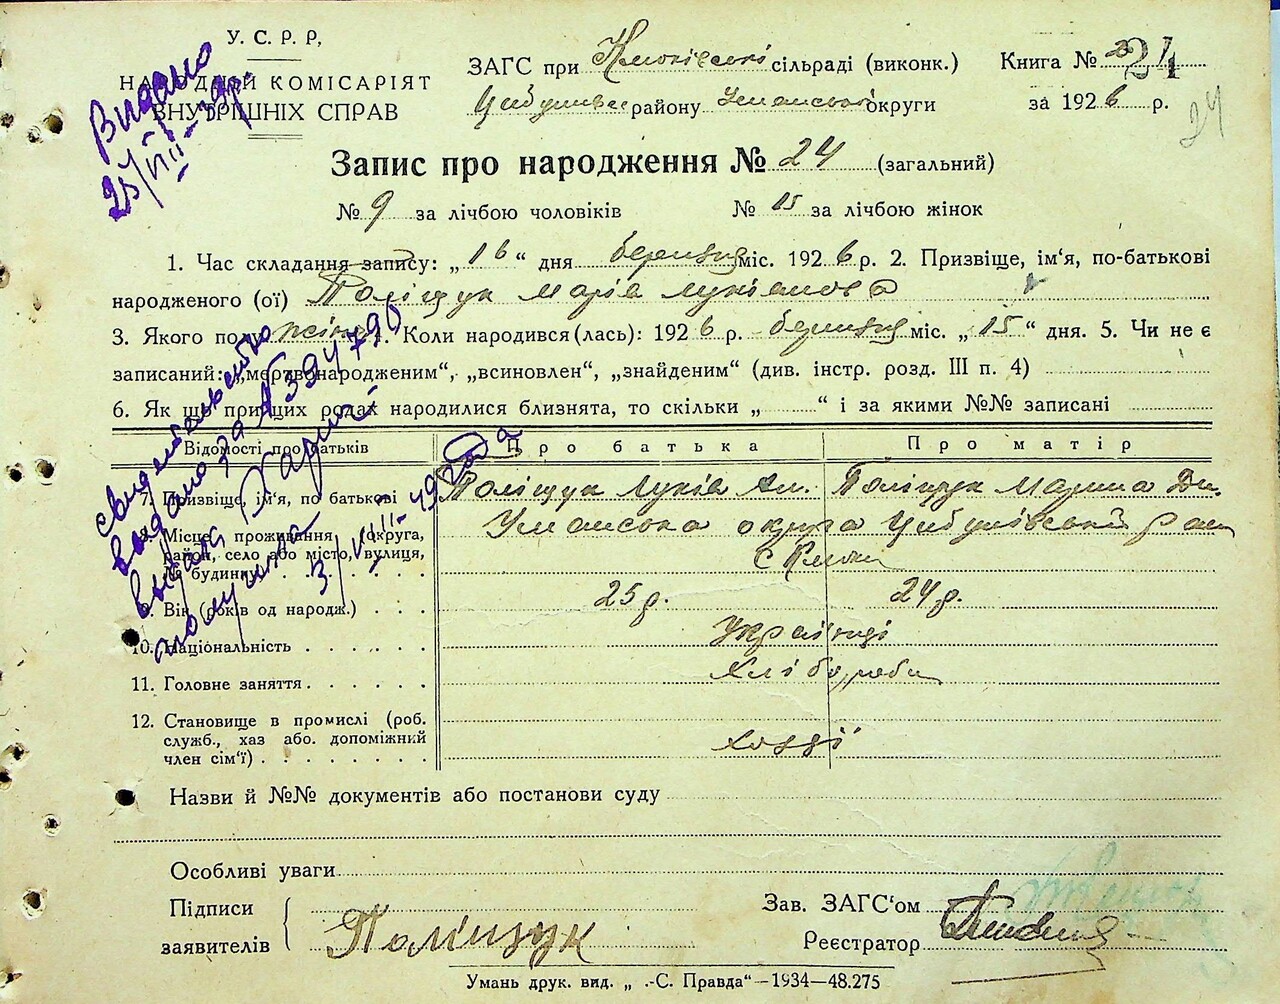 У. С. Р. Р,
НАРОДНІЙ КОМІСАРІЯТ
ВНУТРІШНІХ СПРАВ
Видано
25/VIII-
ЗАГС при сільраді (виконк.)
району Уманської округи
Книга № 24
за 1926 р.
24
Запис про народження № 24 (загальний)
№ 9 за лічбою чоловіків № 15 за лічбою жінок
1. Час складання запису: „16“ дня березня міс. 1926 р. 2. Призвіще, ім‘я, по-батькові
народженого (ої) Поліщук Марія Лукіянова
3. Якого полу жіноч. Коли народився (лась): 1926 р. березня міс. „15“ дня. 5. Чи не є
записаний: „мертвонародженим“, „всиновлен“, „знайденим“ (див. інстр. розд. III п. 4)
6. Як що при цих родах народилися близнята, то скільки „ “ і за якими №№ записані
Відомості про батьків Про батька Про матір
7. Призвіще, ім‘я, по батькові Поліщук Лукія Поліщук Марина
8. Місце проживання (округа, Уманська округа Цибулівський
район, село або місто, вулиця,
№ будинку с
9. Вік (років од народж.) 25 р. 24 р.
10. Національність Українці
11. Головне заняття Хлібороби
12. Становище в промислі (роб.
служб., хаз або. допоміжний
член сім‘ї)
видано за № 394790
Назви й №№ документів або постанови суду
Особливі уваги
Підписи
заявителів Поліщук
Зав. ЗАГС‘ом
Реєстратор
Умань друк. вид. „ .-С. Правда“—1934—48.275